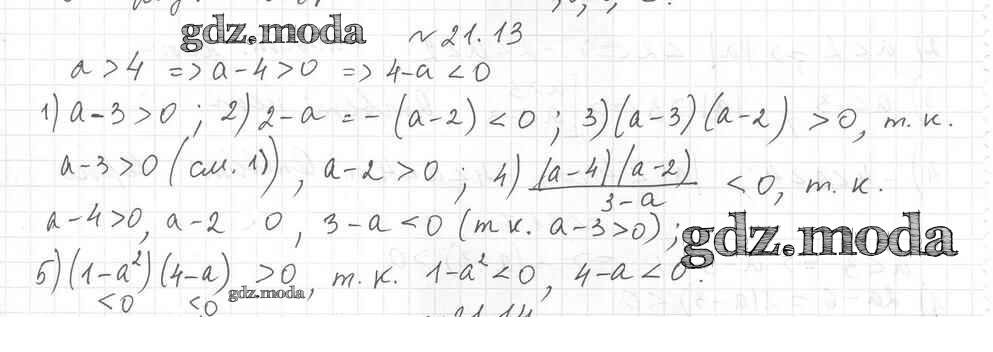 gdz.moda № 21.13
a > 4 => a - 4 > 0 => 4 - a < 0
1) a - 3 > 0 ; 2) 2 - a = - (a - 2) < 0 ; 3) (a - 3) (a - 2) > 0, т. к.
a - 3 > 0 (см. 1)), a - 2 > 0 ; 4) (a - 4) (a - 2) / 3 - a < 0, т. к.
a - 4 > 0, a - 2 0, 3 - a < 0 (т к. a - 3 > 0) ;
gdz.moda
5) (1 - a²) (4 - a) > 0, т. к. 1 - a² < 0, 4 - a < 0.
< 0 < 0 gdz.moda
21.14